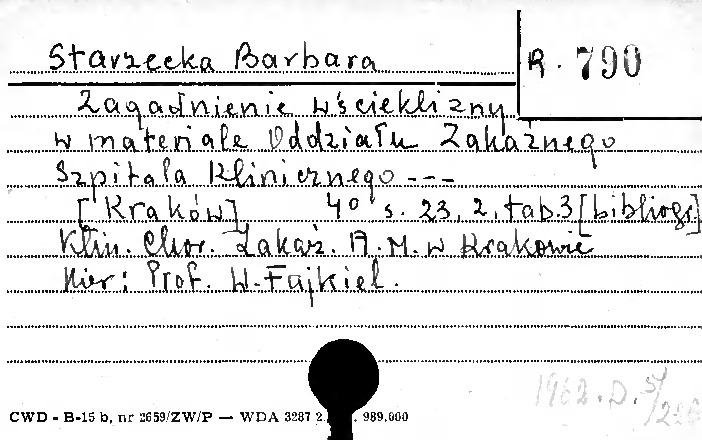 Starzecka Barbara
R. 790
Zagadnienie wścieklizny
w materiale Oddziału Zakaźnego
Szpitala Klinicznego ---
[Kraków] 4° s. 23, 2, tab. 3 [bibliogr.]
Klin. Chor. Zakaź. A. M. w Krakowie
Kier: Prof. W. Fajkiel.
1962. D.
CWD - B-15 b, nr 2659/ZW/P — WDA 3287 2. . 989.000